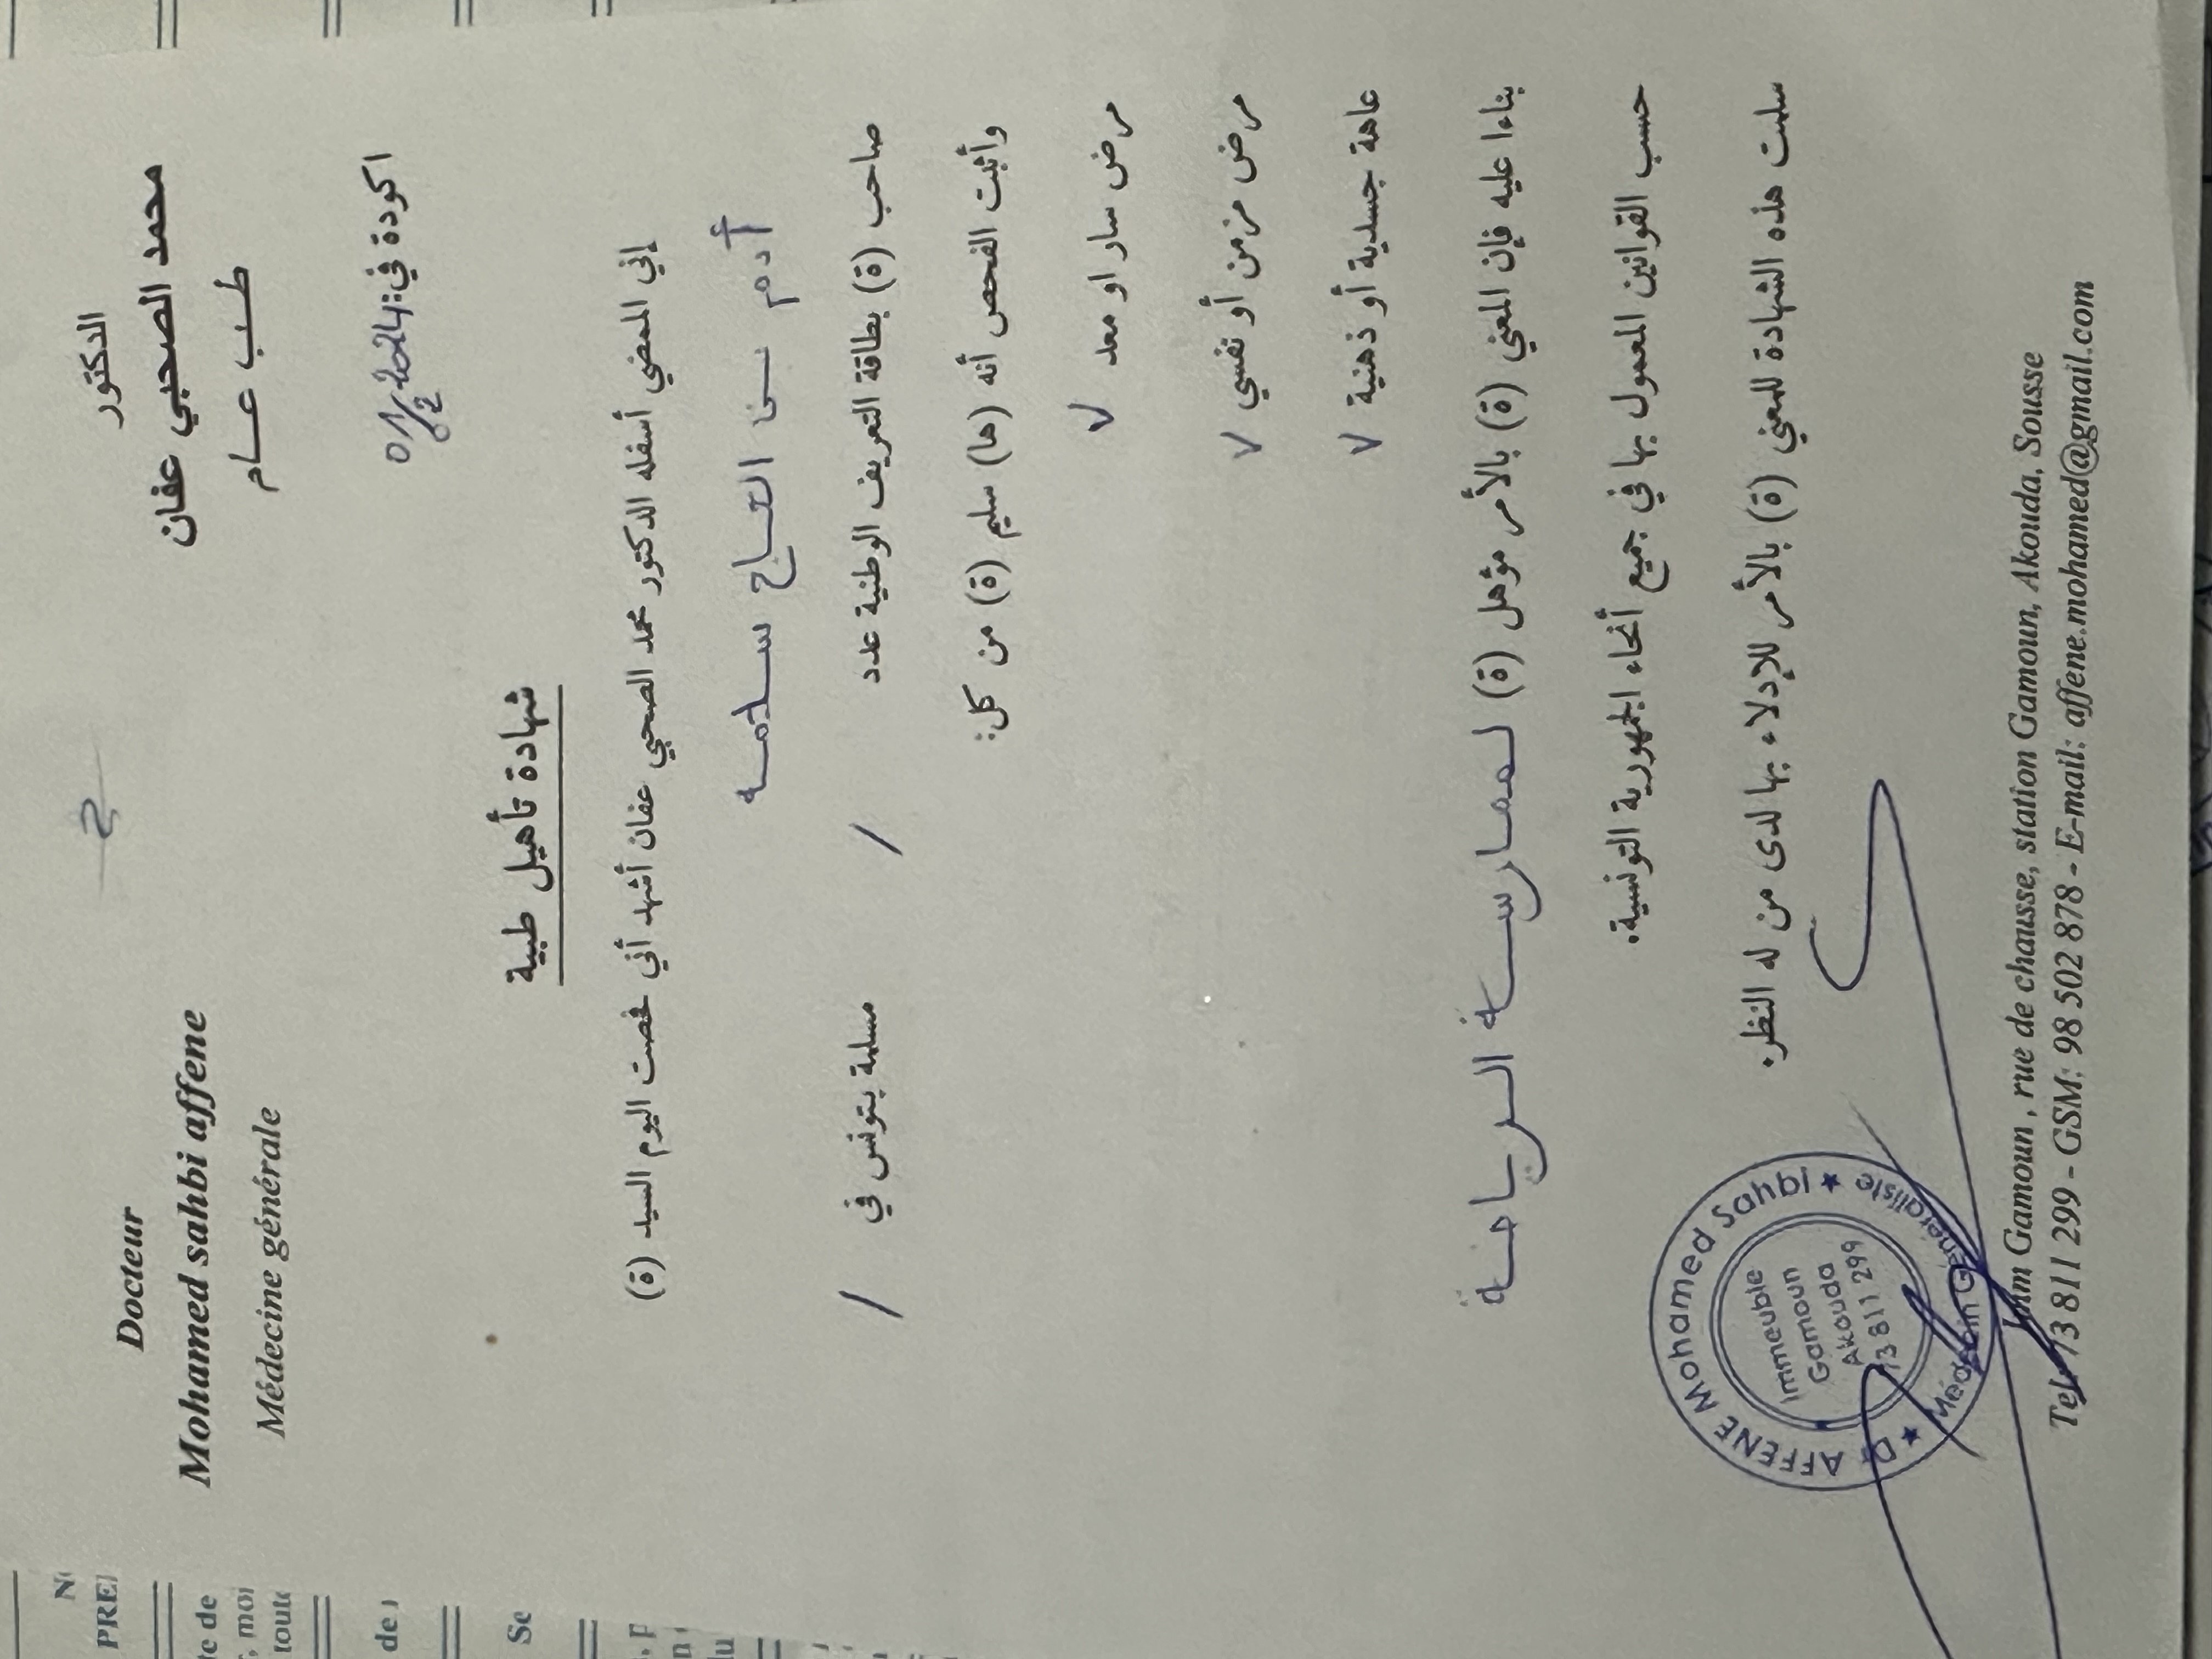 الدكتور
محمد الصحبي عفان
طب عام
Docteur
Mohamed sahbi affene
Médecine générale
اكودة في: 01/02/2024
شهادة تأهيل طبية
إني الممضي أسفله الدكتور محمد الصحبي عفان أشهد أني فحصت اليوم السيد (ة)
أدم بن الحاج سلامه
صاحب (ة) بطاقة التعريف الوطنية عدد / مسلمة بتونس في /
وأثبت الفحص أنه (ها) سليم (ة) من كل:
مرض سار او معد √
مرض مزمن أو نفسي √
عاهة جسدية أو ذهنية √
بناءا عليه فإن المعني (ة) بالأمر مؤهل (ة) لممارسة الرياضة
حسب القوانين المعمول بها في جميع أنحاء الجمهورية التونسية.
سلمت هذه الشهادة للمعني (ة) بالأمر للإدلاء بها لدى من له النظر.
Dr AFFENE Mohamed Sahbi
Médecin Généraliste
Immeuble
Gamoun
Akouda
73 811 299
Imm Gamoun , rue de chausse, station Gamoun, Akouda, Sousse
Tel: 73 811 299 - GSM: 98 502 878 - E-mail: affene.mohamed@gmail.com
PRE
de
moi
toute
de
Se
du